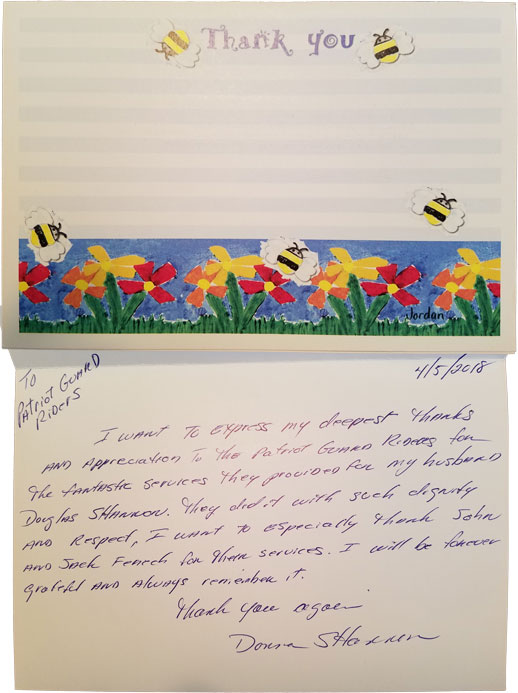 Thank you
Jordan
TO
Patriot Guard
Riders
4/5/2018
I want to express my deepest thanks
and appreciation to the Patriot Guard Riders for
the fantastic services they provided for my husband
Douglas Shannon. They did it with such dignity
and respect, I want to especially thank John
and Jack Fenech for their services. I will be forever
grateful and always remember it.
Thank you again
Donna Shannon